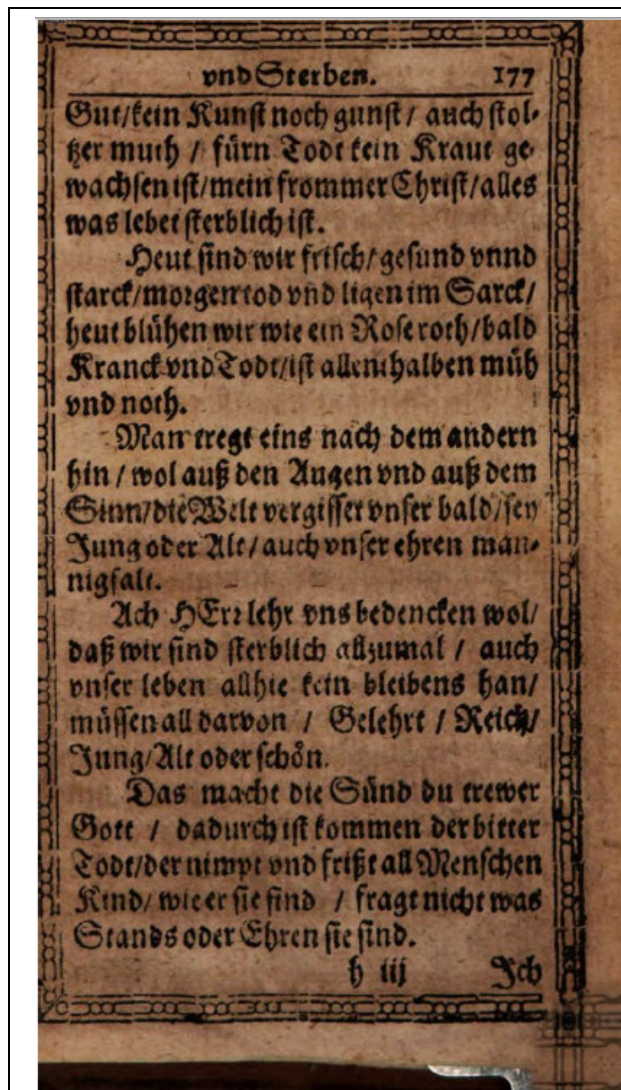 vnd Sterben. 177
Gut/kein Kunst noch gunst / auch stol-
tzer muth / fürn Todt kein Kraut ge-
wachsen ist/mein frommer Christ/alles
was lebet sterblich ist.
Heut sind wir frisch/gesund vnnd
starck/morgen tod vnd ligen im Sarck/
heut blühen wir wie ein Rose roth/bald
Kranck vnd Todt/ist allenthalben müh
vnd noth.
Man tregt eins nach dem andern
hin / wol auß den Augen vnd auß dem
Sinn/die Welt vergisset vnser bald/sey
Jung oder Alt/auch vnser ehren man-
nigfalt.
Ach HErr lehr vns bedencken wol/
daß wir sind sterblich allzumal / auch
vnser leben allhie kein bleibens han/
müssen all darvon / Gelehrt / Reich/
Jung/Alt oder schön.
Das macht die Sünd du trewer
Gott / dadurch ist kommen der bitter
Todt/der nimpt vnd frißt all Menschen
Kind/ wie er sie find / fragt nicht was
Stands oder Ehren sie sind.
h iij Jch